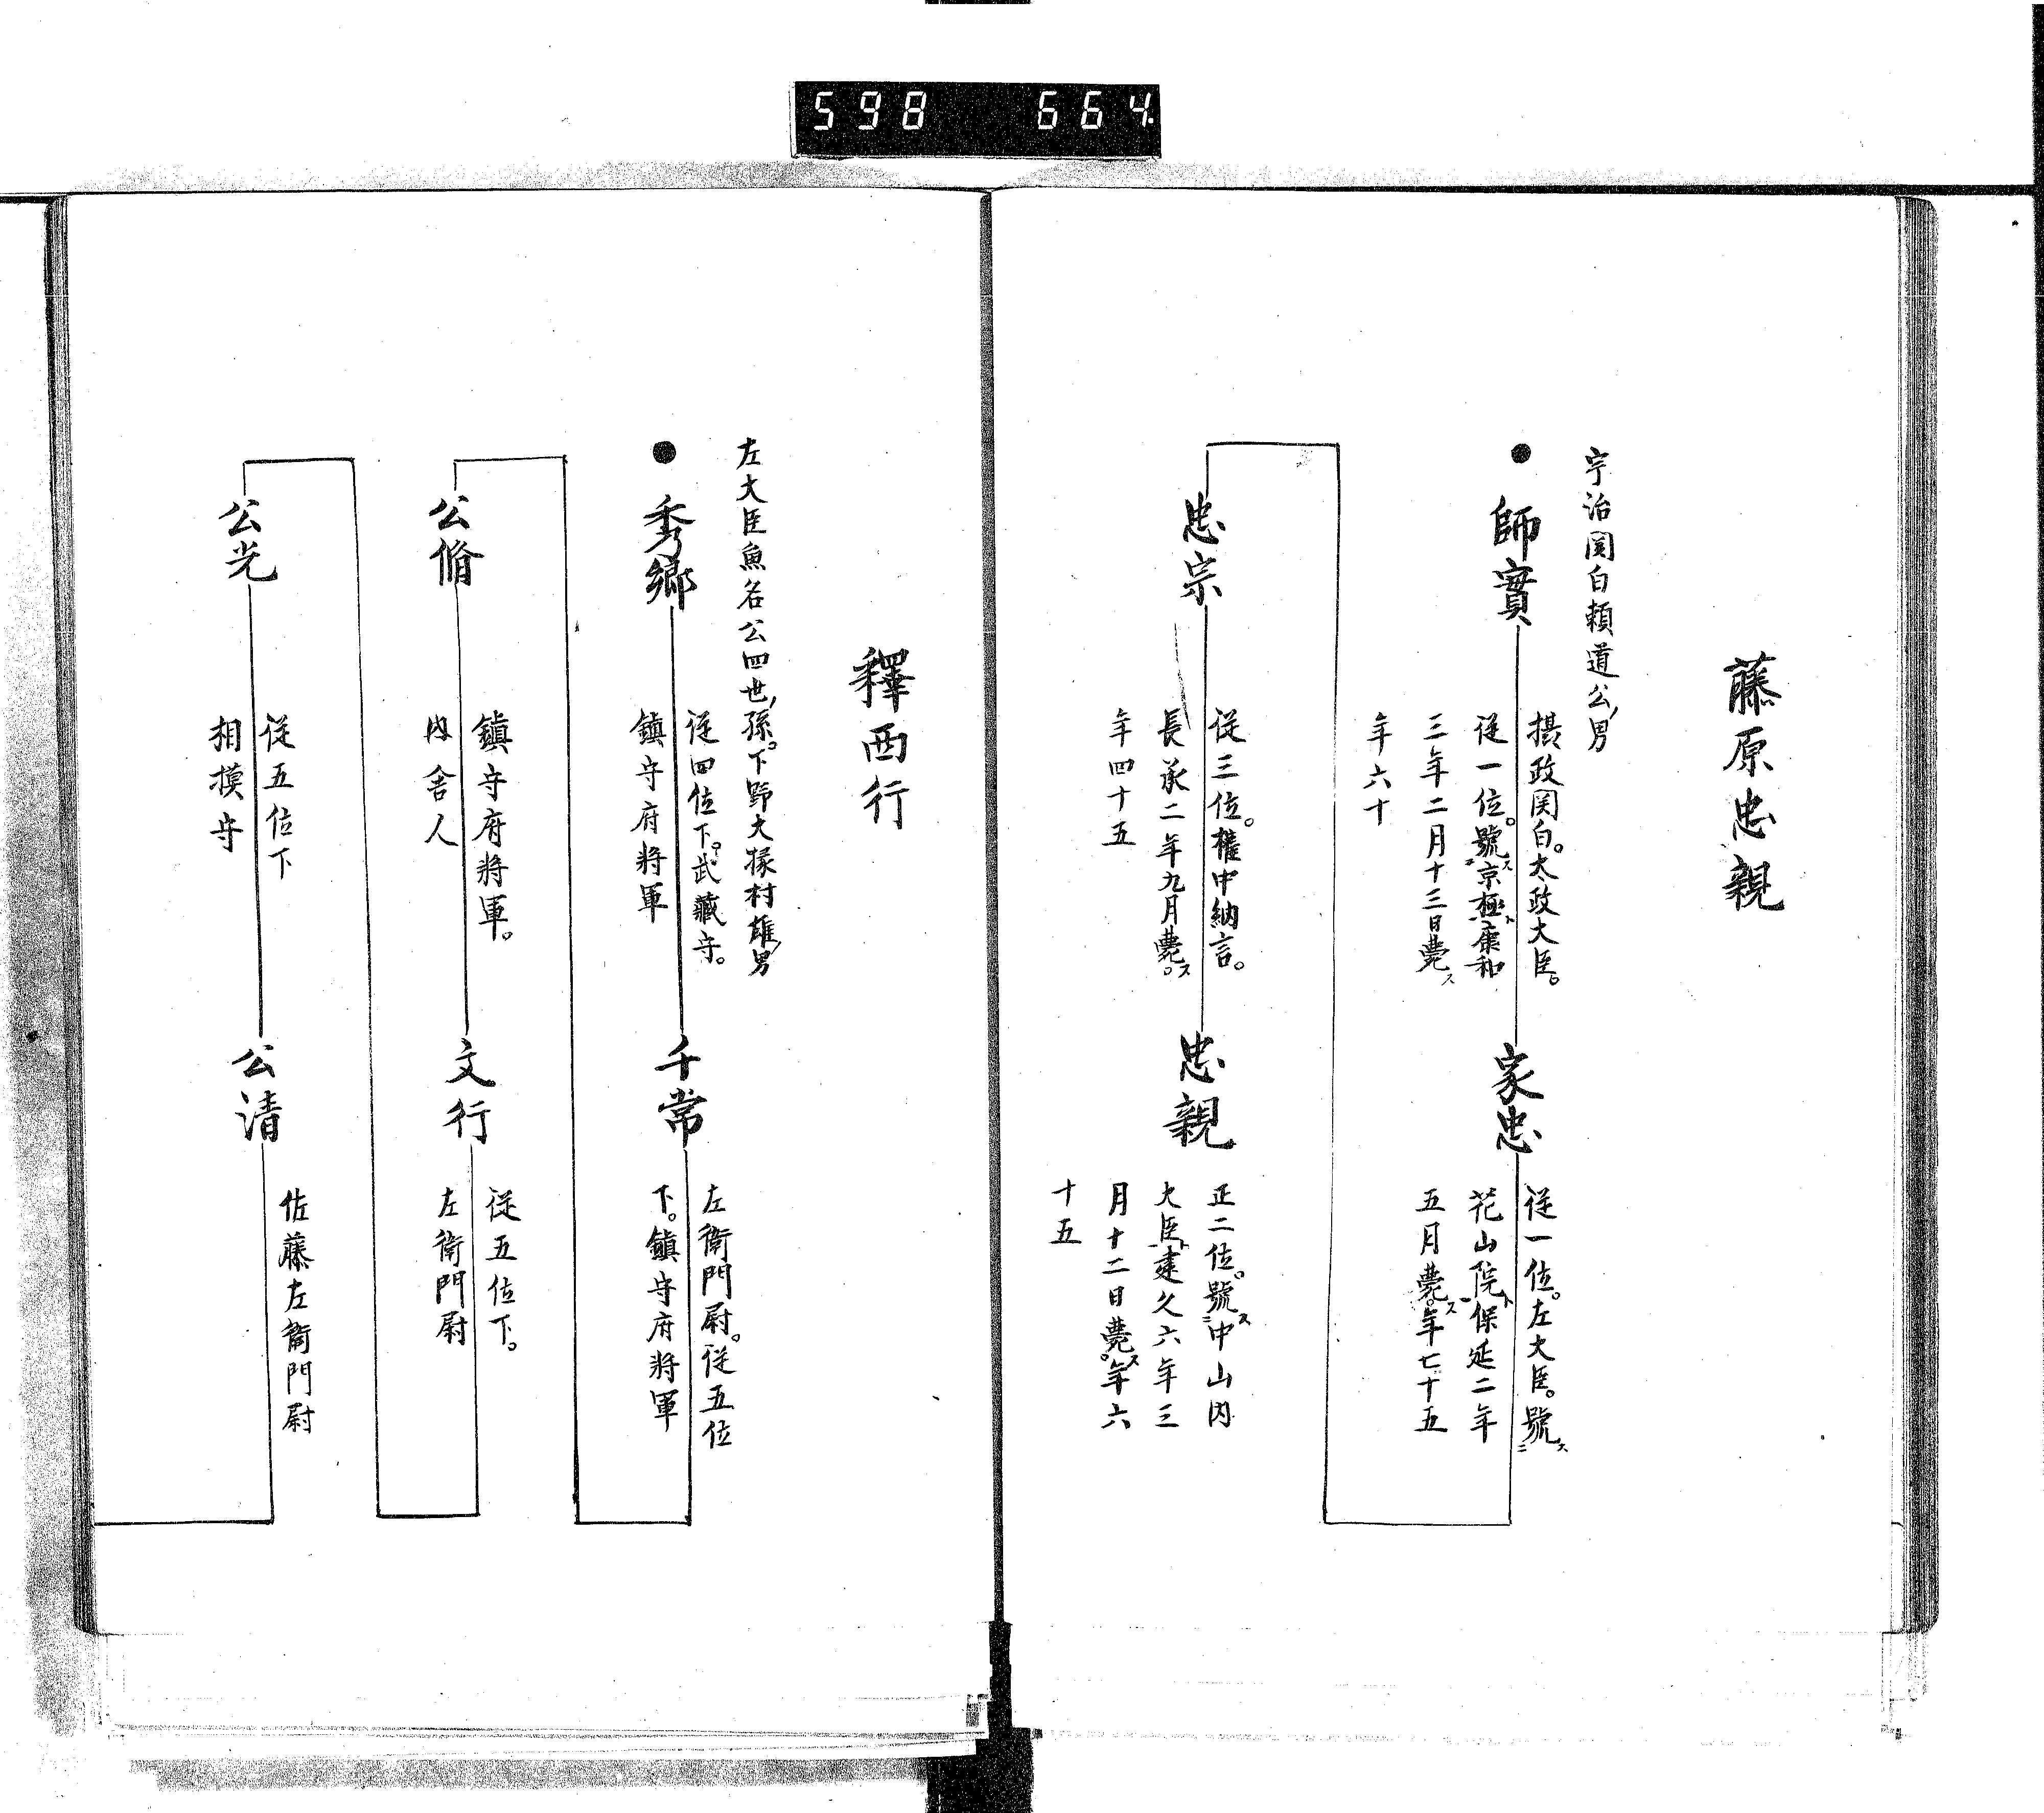 598 664
藤原忠親
宇治関白頼道公ノ男
師實
摂政関白。太政大臣。
従一位。號ス京極ト康和
三年二月十三日薨ス
年六十
家忠
従一位。左大臣。號ス
花山院ト保延二年
五月薨ス。年七十五
忠宗
従三位。権中納言。
長承二年九月薨ス。
年四十五
忠親
正二位。號ス中山内
大臣ト建久六年三
月十二日薨ス。年六
十五
釋西行
左大臣魚名公四世ノ孫。下野大掾村雄ノ男
秀郷
従四位下。武蔵守。
鎮守府将軍
千常
左衛門尉。従五位
下。鎮守府将軍
公脩
鎮守府将軍。
内舎人
文行
従五位下。
左衛門尉
公光
従五位下
相摸守
公清
佐藤左衛門尉